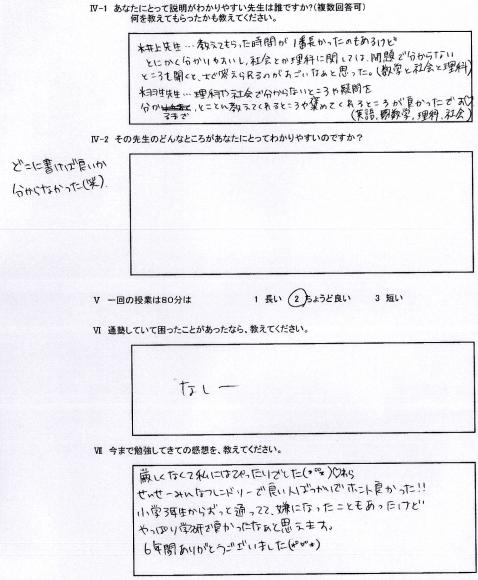 Ⅳ-1 あなたにとって説明がわかりやすい先生は誰ですか?(複数回答可)
何を教えてもらったかも教えてください。
井上先生…教えてもらった時間が1番長かったのもあるけど
とにかく分かりやすいし、社会とか理科に関しては、問題で分からない
ところも聞くと、すぐ答えられるのがすごいなぁと思った。(数学と社会と理科)
先生…理科や社会で分からないところや疑問を
分かるまで、とことん教えてくれるところや褒めてくれるところが良かったです♡
(英語、数学、理科、社会)
Ⅳ-2 その先生のどんなところがあなたにとってわかりやすいのですか?
どこに書けば良いか
分からなかった(笑)
Ⅴ 一回の授業は80分は 1 長い 2 ちょうど良い 3 短い
Ⅵ 通塾していて困ったことがあったなら、教えてください。
なしー
Ⅶ 今まで勉強してきての感想を、教えてください。
厳しくなくて私にはぴったりでした(*°°*)♡
せんせーみんなフレンドリーで良い人ばっかいでホント良かった!!
小学3年生からずっと通ってて、嫌になったこともあったけど
やっぱり学研で良かったなぁと思えます。
6年間ありがとうございました(*°▽°*)